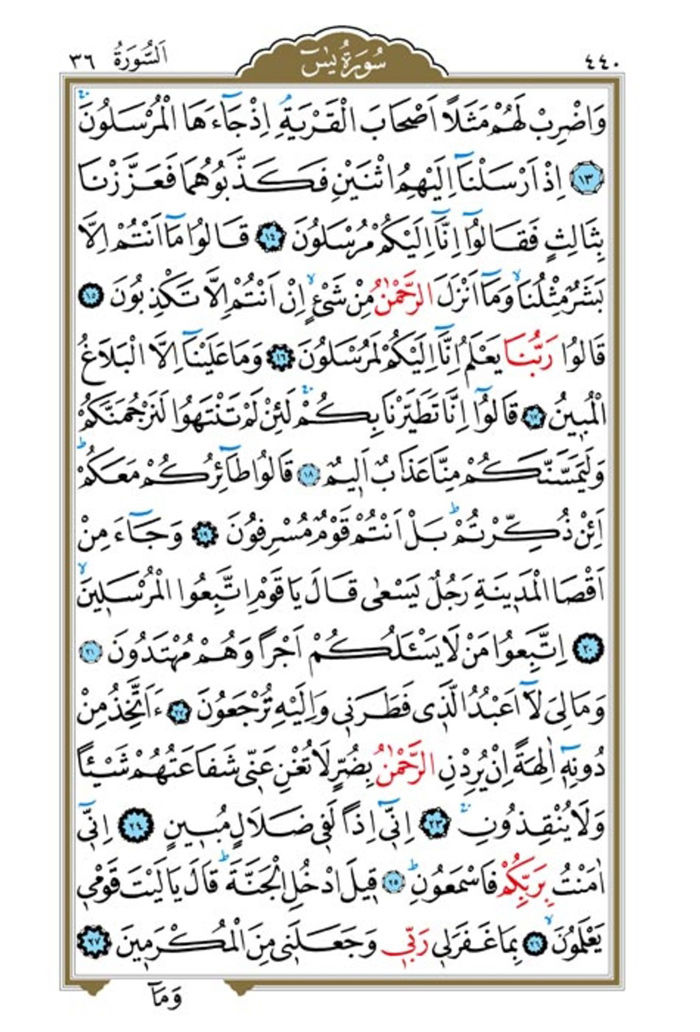 ٤٤٠ سُورَةُ يٰسٓ اَلسُّورَةُ ٣٦
وَاضْرِبْ لَهُمْ مَثَلًا اَصْحَابَ الْقَرْيَةِۢ اِذْ جَٓاءَهَا الْمُرْسَلُونَۚ
﴿١٣﴾ اِذْ اَرْسَلْنَٓا اِلَيْهِمُ اثْنَيْنِ فَكَذَّبُوهُمَا فَعَزَّزْنَا
بِثَالِثٍ فَقَالُٓوا اِنَّٓا اِلَيْكُمْ مُرْسَلُونَ ﴿١٤﴾ قَالُوا مَٓا اَنْتُمْ اِلَّا
بَشَرٌ مِثْلُنَاۙ وَمَٓا اَنْزَلَ الرَّحْمٰنُ مِنْ شَيْءٍۙ اِنْ اَنْتُمْ اِلَّا تَكْذِبُونَ ﴿١٥﴾
قَالُوا رَبُّنَا يَعْلَمُ اِنَّٓا اِلَيْكُمْ لَمُرْسَلُونَ ﴿١٦﴾ وَمَا عَلَيْنَٓا اِلَّا الْبَلَاغُ
الْمُبِينُ ﴿١٧﴾ قَالُٓوا اِنَّا تَطَيَّرْنَا بِكُمْۚ لَئِنْ لَمْ تَنْتَهُوا لَنَرْجُمَنَّكُمْ
وَلَيَمَسَّنَّكُمْ مِنَّا عَذَابٌ اَلِيمٌ ﴿١٨﴾ قَالُوا طَٓائِرُكُمْ مَعَكُمْۜ
اَئِنْ ذُكِّرْتُمْۜ بَلْ اَنْتُمْ قَوْمٌ مُسْرِفُونَ ﴿١٩﴾ وَجَٓاءَ مِنْ
اَقْصَا الْمَدِينَةِ رَجُلٌ يَسْعٰى قَالَ يَا قَوْمِ اتَّبِعُوا الْمُرْسَلِينَۙ
﴿٢٠﴾ اِتَّبِعُوا مَنْ لَا يَسْـَٔلُكُمْ اَجْرًا وَهُمْ مُهْتَدُونَ ﴿٢١﴾
وَمَا لِيَ لَٓا اَعْبُدُ الَّذِي فَطَرَنِي وَاِلَيْهِ تُرْجَعُونَ ﴿٢٢﴾ ءَاَتَّخِذُ مِنْ
دُونِهِٓ اٰلِهَةً اِنْ يُرِدْنِ الرَّحْمٰنُ بِضُرٍّ لَا تُغْنِ عَنِّي شَفَاعَتُهُمْ شَيْـًٔا
وَلَا يُنْقِذُونِۚ ﴿٢٣﴾ اِنِّٓي اِذًا لَفِي ضَلَالٍ مُبِينٍ ﴿٢٤﴾ اِنِّٓي
اٰمَنْتُ بِرَبِّكُمْ فَاسْمَعُونِۜ ﴿٢٥﴾ قِيلَ ادْخُلِ الْجَنَّةَۜ قَالَ يَا لَيْتَ قَوْمِي
يَعْلَمُونَۙ ﴿٢٦﴾ بِمَا غَفَرَ لِي رَبِّي وَجَعَلَنِي مِنَ الْمُكْرَمِينَ ﴿٢٧﴾
وَمَٓا